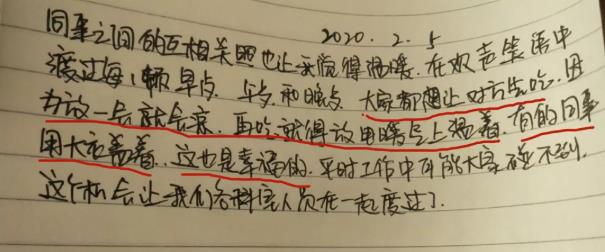 2020.2.5
同事之间的互相关照也让我觉得温暖.在欢声笑语中
渡过每1顿早点、午点和晚点.大家都想让对方先吃.因
为放一会就会凉.再吃就得放电暖气上温着.有的同事
用大衣盖着..这也是幸福的.平时工作中可能大家碰不到.
这个机会让我们各科室人员在一起度过了.